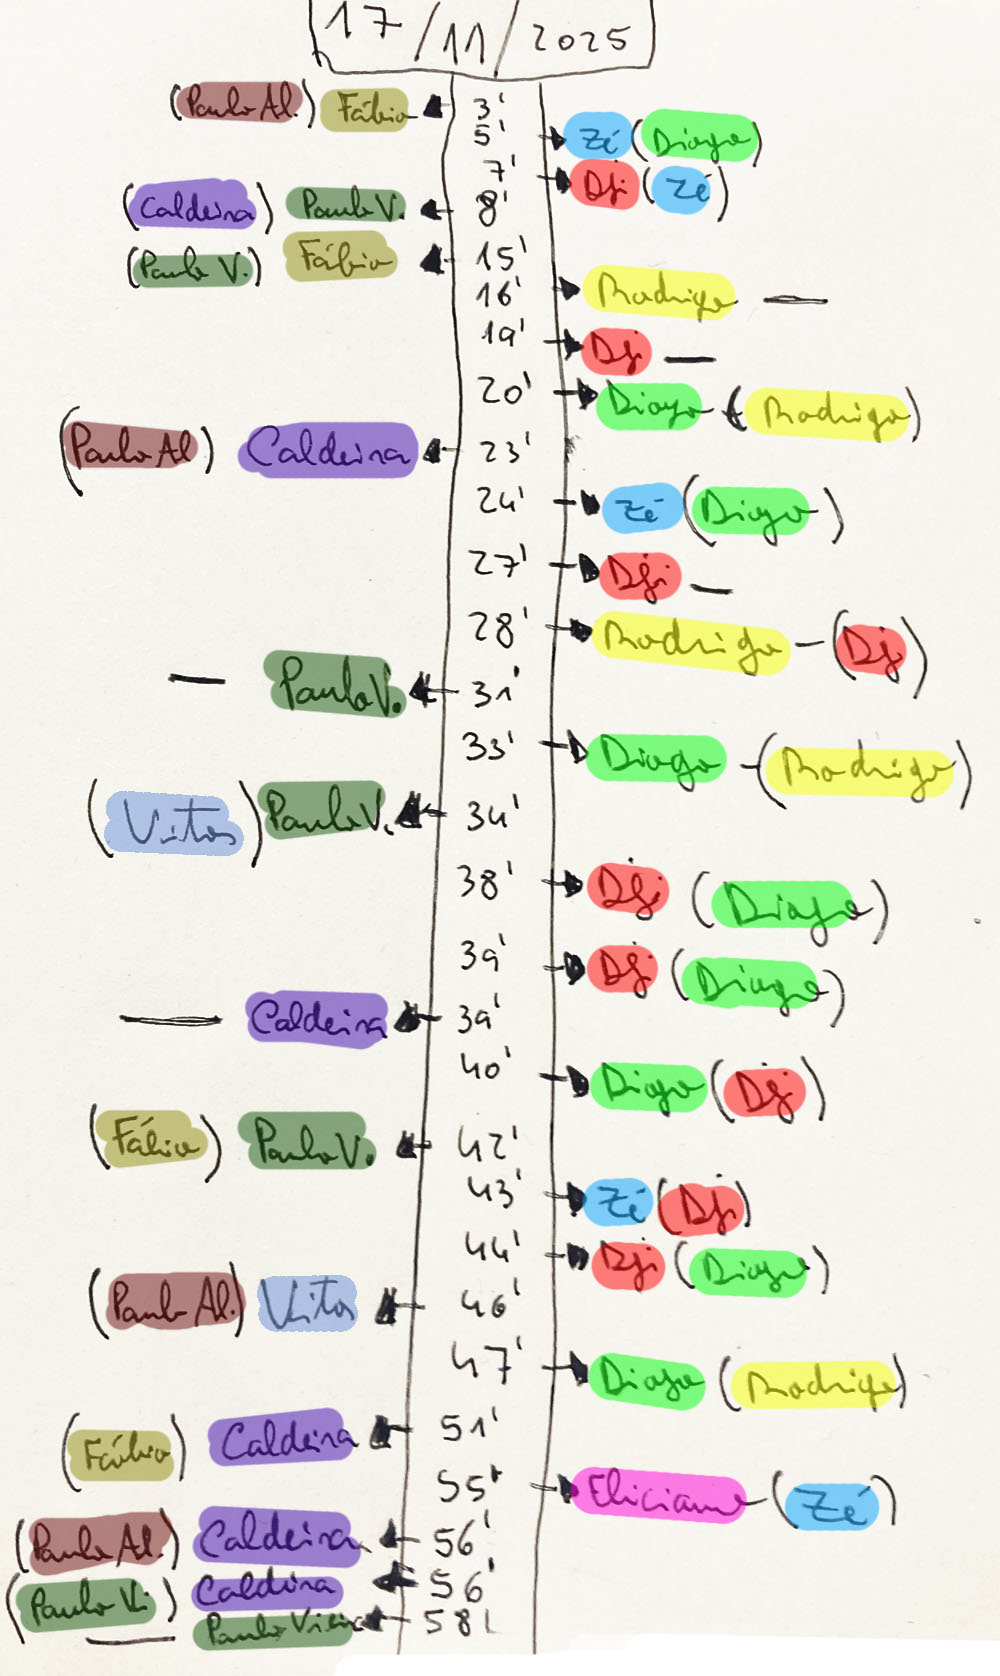 17/11/2025
(Paulo Al.) Fábio 3'
5' Zé (Diogo)
7' Dji (Zé)
(Caldeira) Paulo V. 8'
(Paulo V.) Fábio 15'
16' Rodrigo —
19' Dji —
20' Diogo - (Rodrigo)
(Paulo Al) Caldeira 23'
24' Zé (Diogo)
27' Dji —
28' Rodrigo - (Dji)
— Paulo V. 31'
33' Diogo - (Rodrigo)
(Vitor) Paulo V. 34'
38' Dji (Diogo)
39' Dji (Diogo)
— Caldeira 39'
40' Diogo (Dji)
(Fábio) Paulo V. 42'
43' Zé (Dji)
44' Dji (Diogo)
(Paulo Al.) Vitor 46'
47' Diogo (Rodrigo)
(Fábio) Caldeira 51'
55' Eliciano - (Zé)
(Paulo Al.) Caldeira 56'
(Paulo Vi) Caldeira 56'
— Paulo Vieira 58'